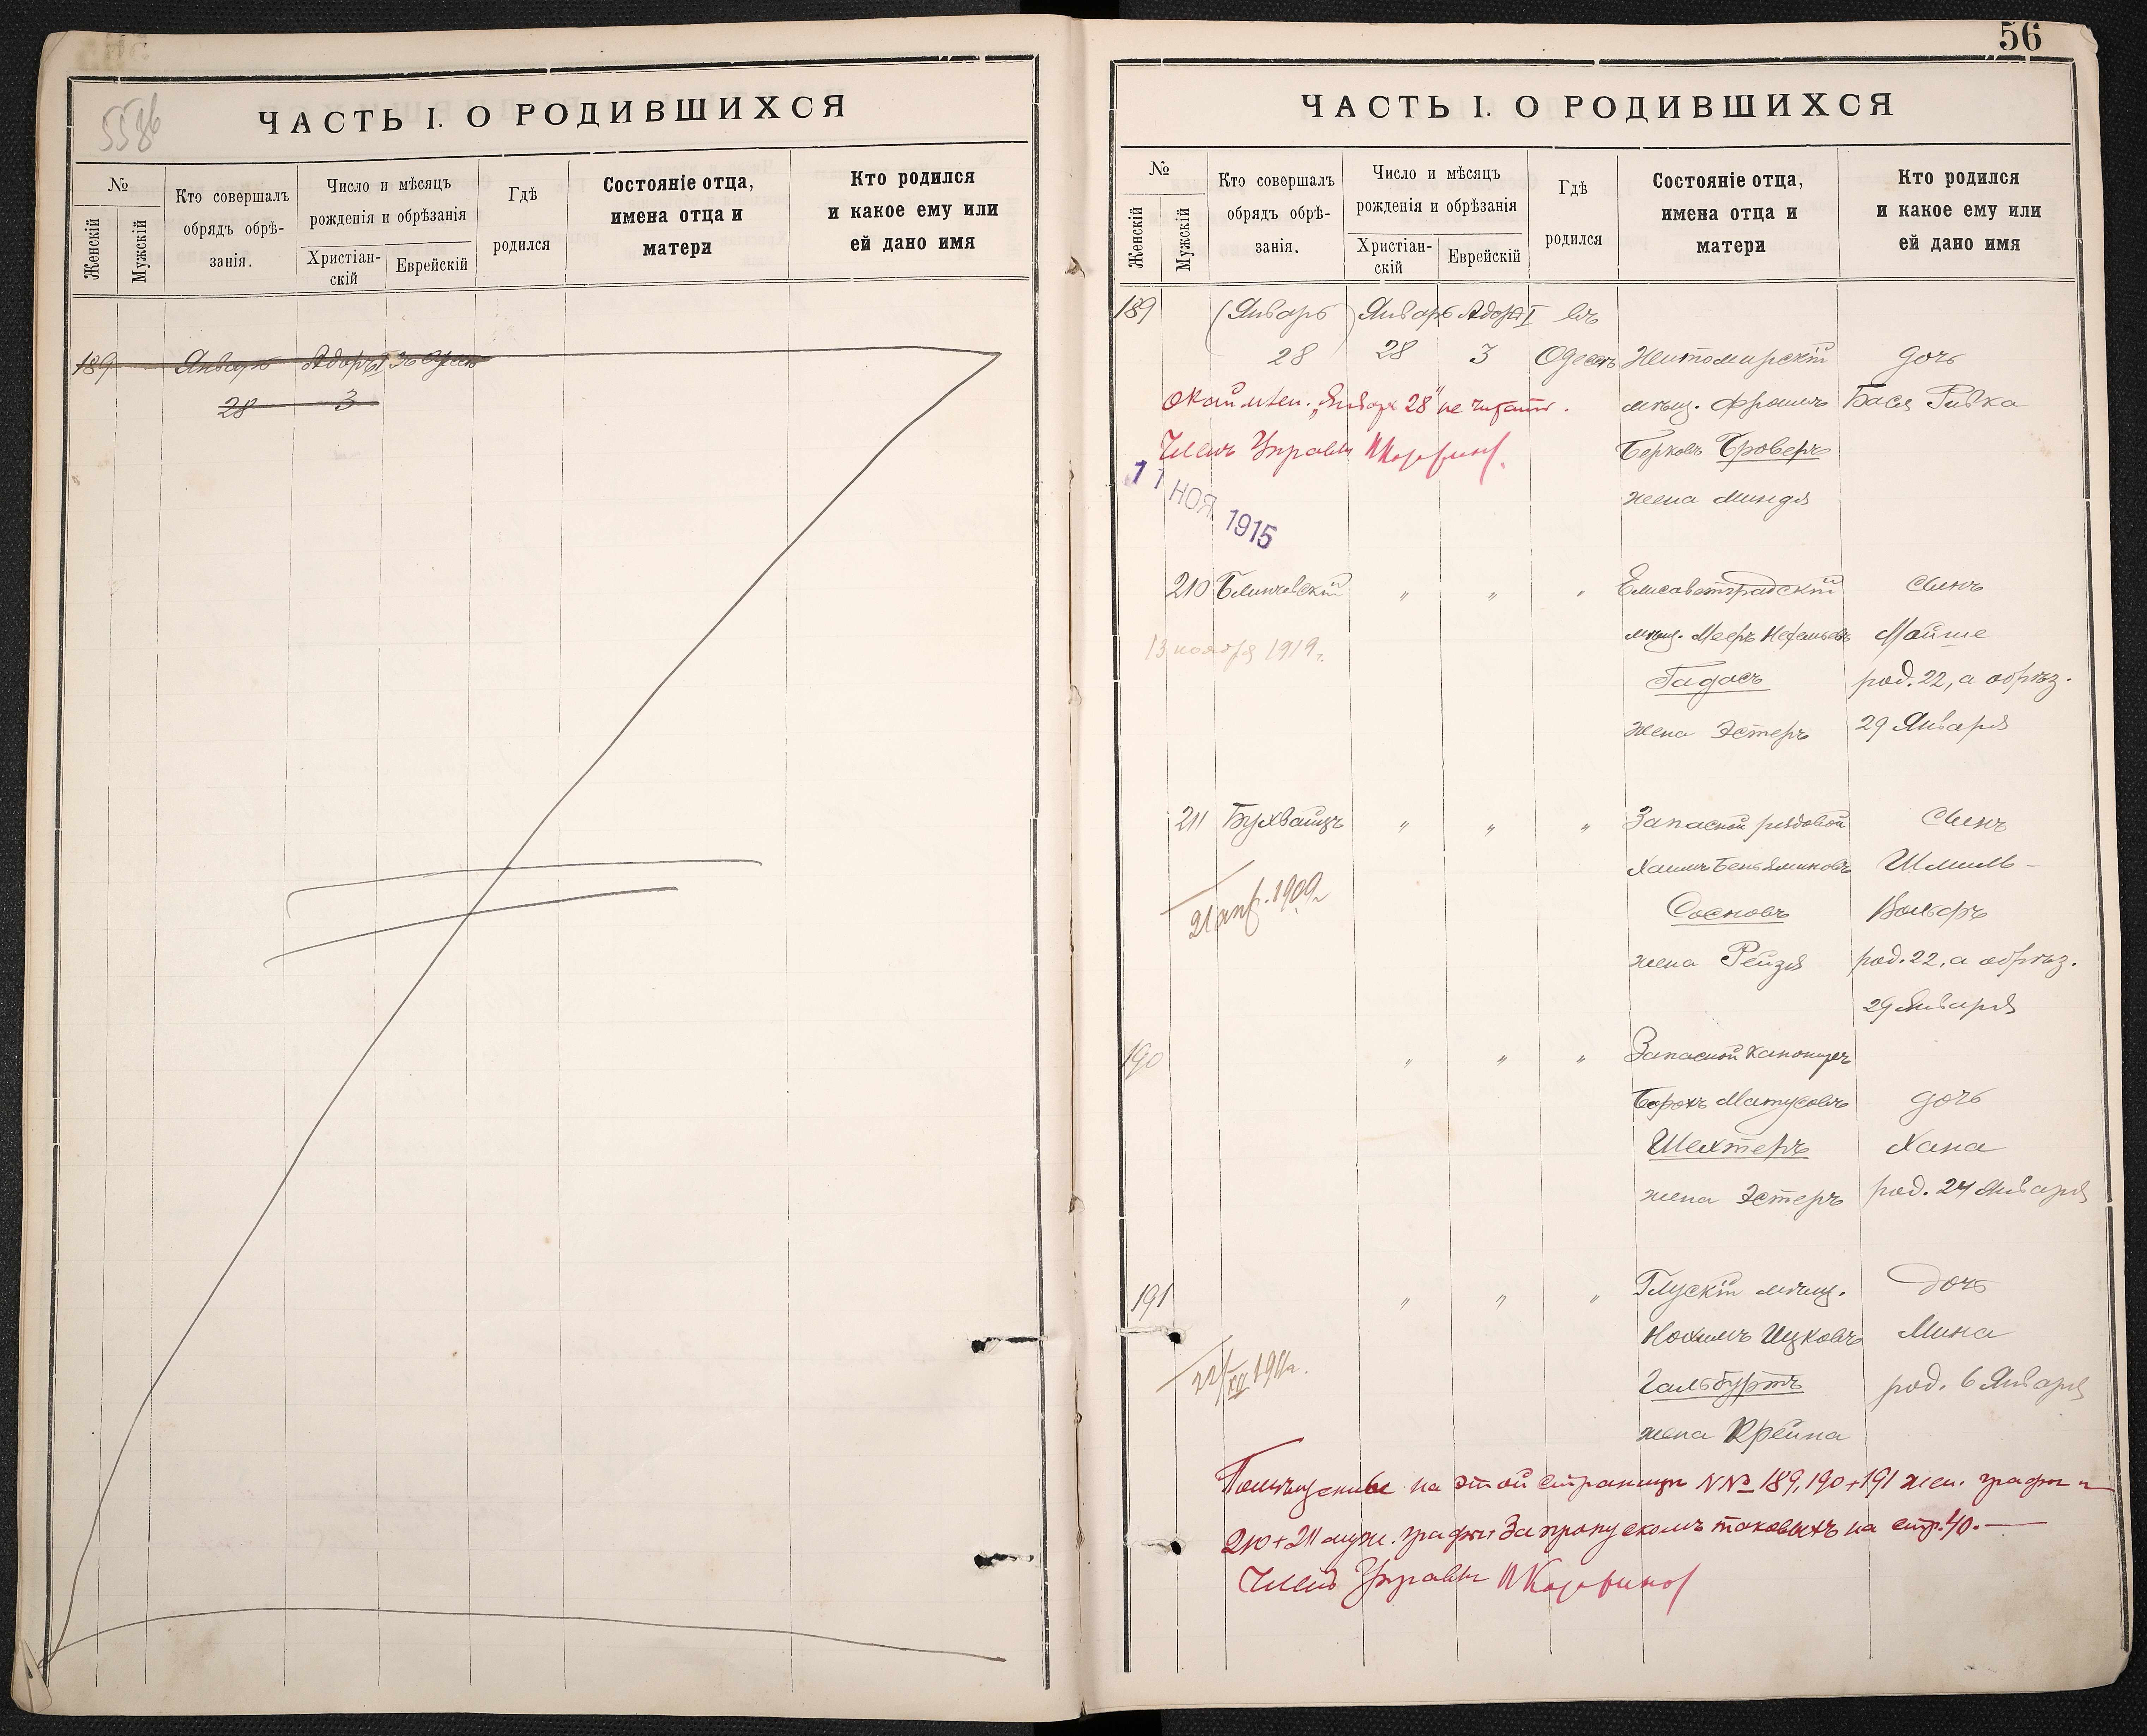 55 об
ЧАСТЬ I. О РОДИВШИХСЯ
№
Женскій
Мужскій
Кто совершалъ
обрядъ обрѣ-
занія.
Число и мѣсяцъ
рожденія и обрѣзанія
Христіан-
скій
Еврейскій
Гдѣ
родился
Состояніе отца,
имена отца и
матери
Кто родился
и какое ему или
ей дано имя
189 Январь Адаръ I
28 3
56
ЧАСТЬ I. О РОДИВШИХСЯ
№
Женскій
Мужскій
Кто совершалъ
обрядъ обрѣ-
занія.
Число и мѣсяцъ
рожденія и обрѣзанія
Христіан-
скій
Еврейскій
Гдѣ
родился
Состояніе отца,
имена отца и
матери
Кто родился
и какое ему или
ей дано имя
189 (Январь) Январь Адаръ I въ
28 28 3 Одессѣ Житомирскій дочь
"Январь 28" не читать.
мѣщ. Фроимъ Бася Ривка
Членъ Управы
Берковъ Броверъ
жена Миндя
11 НОЯ 1915
210 Блинчевскій " " " Елисаветградскій сынъ
мѣщ. Мееръ Мойше
13 ноября 1919 г.
Гадасъ род. 22, а обрѣз.
жена Эстеръ 29 Января
211 Бухвайцъ " " " Запасной рядовой сынъ
Хаимъ Беньяминовъ Шмиль-
21 апр. 1909 г.
Сосновъ Вольфъ
жена Рейзя род. 22, а обрѣз.
29 Января
190 " " " Запасной канониръ
Борохъ Матусовъ дочь
Шехтеръ Хана
жена Эстеръ род. 24 Января
191 " " " Глускій мѣщ. дочь
Нохимъ Ицковъ Мина
Гальбуртъ род. 6 Января
жена Крейна
на этой страницѣ №№ 189, 190 + 191 жен. графы и
210 + 211 муж. графы за пропускомъ таковыхъ на стр. 40.
Членъ Управы